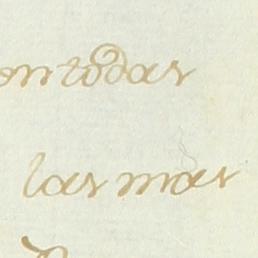 on todas
las mas